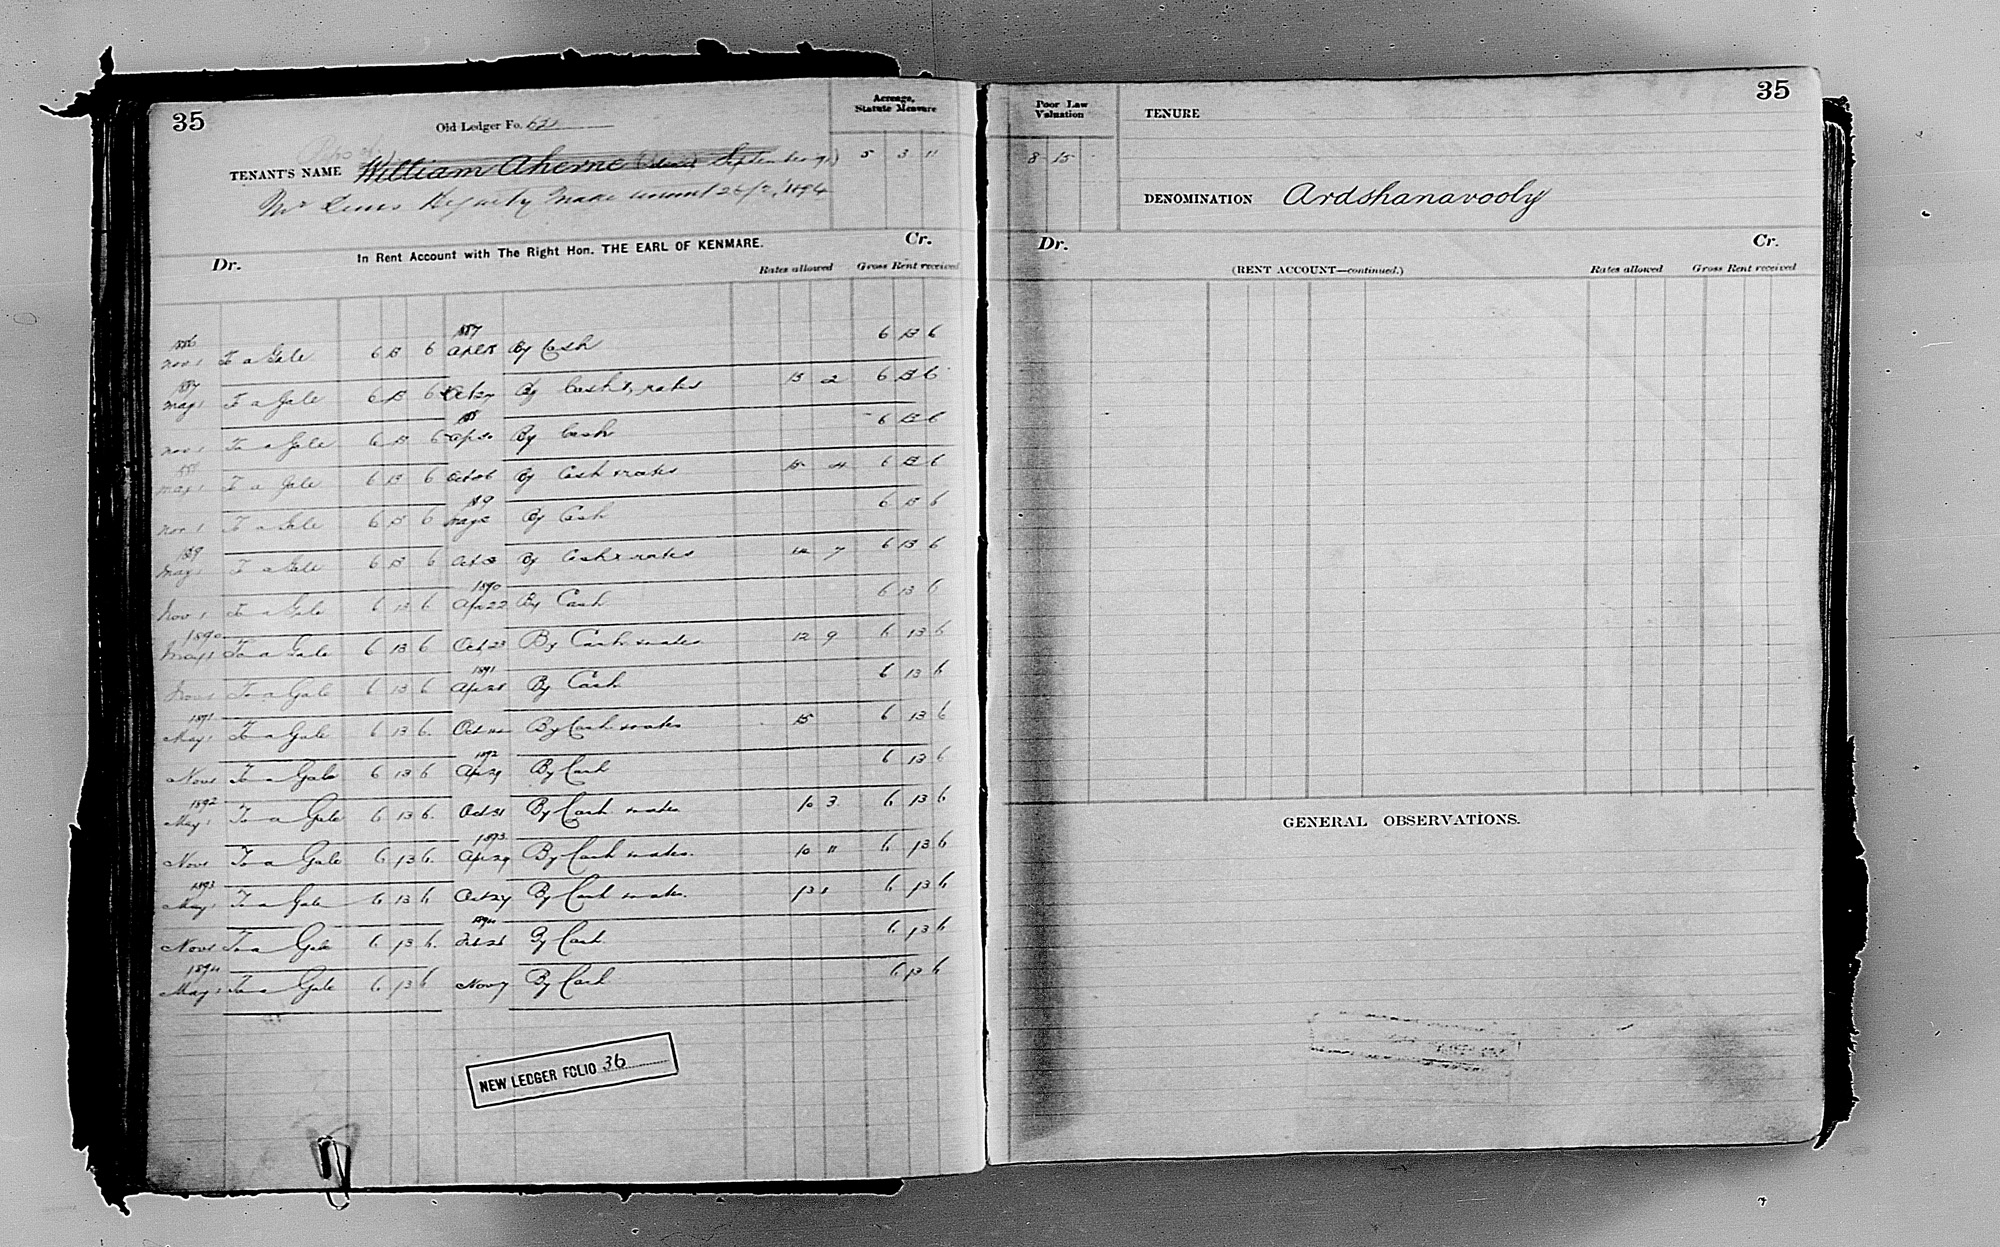 35
Old Ledger Fo. 621
Acreage,
Statute Measure
TENANT'S NAME William Aherne
5 3 11
Mr Denis Hegarty 1894
In Rent Account with The Right Hon. THE EARL OF KENMARE.
Dr. Cr.
Rates allowed Gross Rent received
1886 1887
Nov 1 To a Gale 6 13 6 By Cash 6 13 6
1887
May 1 To a Gale 6 13 6 Oct 27 By Cash & rates 13 2 6 13 6
1888
Nov 1 To a Gale 6 13 6 Ap 30 By Cash 6 13 6
1888
May 1 To a Gale 6 13 6 Oct 26 By Cash & rates 15 4 6 13 6
1889
Nov 1 To a Gale 6 13 6 May 2 By Cash 6 13 6
1889
May 1 To a Gale 6 13 6 Oct By Cash & rates 7 6 13 6
1890
Nov 1 To a Gale 6 13 6 Apr 22 By Cash 6 13 6
1890
May 1 To a Gale 6 13 6 Oct 23 By Cash & rates 12 9 6 13 6
1891
Nov 1 To a Gale 6 13 6 Apr 28 By Cash 6 13 6
1891
May 1 To a Gale 6 13 6. Oct By Cash & rates 15 6 13 6
1892
Nov 1 To a Gale 6 13 6 Apr 29 By Cash 6 13 6
1892
May 1 To a Gale 6 13 6. Oct 31 By Cash & rates 10 3 6 13 6
1893.
Nov 1 To a Gale 6 13 6. Apr 29 By Cash & rates. 10 11 6 13 6
1893
May 1 To a Gale 6 13 6 Oct 27 By Cash & rates. 13 1 6 13 6
1894
Nov 1 To a Gale 6 13 6. Feb 26 By Cash 6 13 6
1894
May 1 To a Gale 6 13 6 Nov 7 By Cash 6 13 6
NEW LEDGER FOLIO 36
35
Poor Law
Valuation
TENURE
8 15 -
DENOMINATION Ardshanavooly
Dr. Cr.
(RENT ACCOUNT—continued.) Rates allowed Gross Rent received
GENERAL OBSERVATIONS.